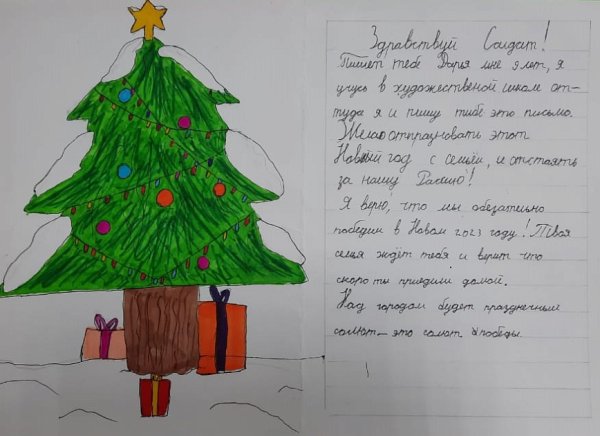 Здравствуй Солдат!
Пишет тебе Дарья мне 9 лет, я
учусь в художественой школе от-
туда я и пишу тибе это письмо.
Желаю отпраздновать этот
Новый год с семьёй, и отстоять
за нашу Расию!
Я верю, что мы обезательно
победим в Новом 2023 году! Твоя
семья ждёт тебя и верит что
скоро ты приедиш домой.
Над городом будет праздничный
салют — это салют победы.